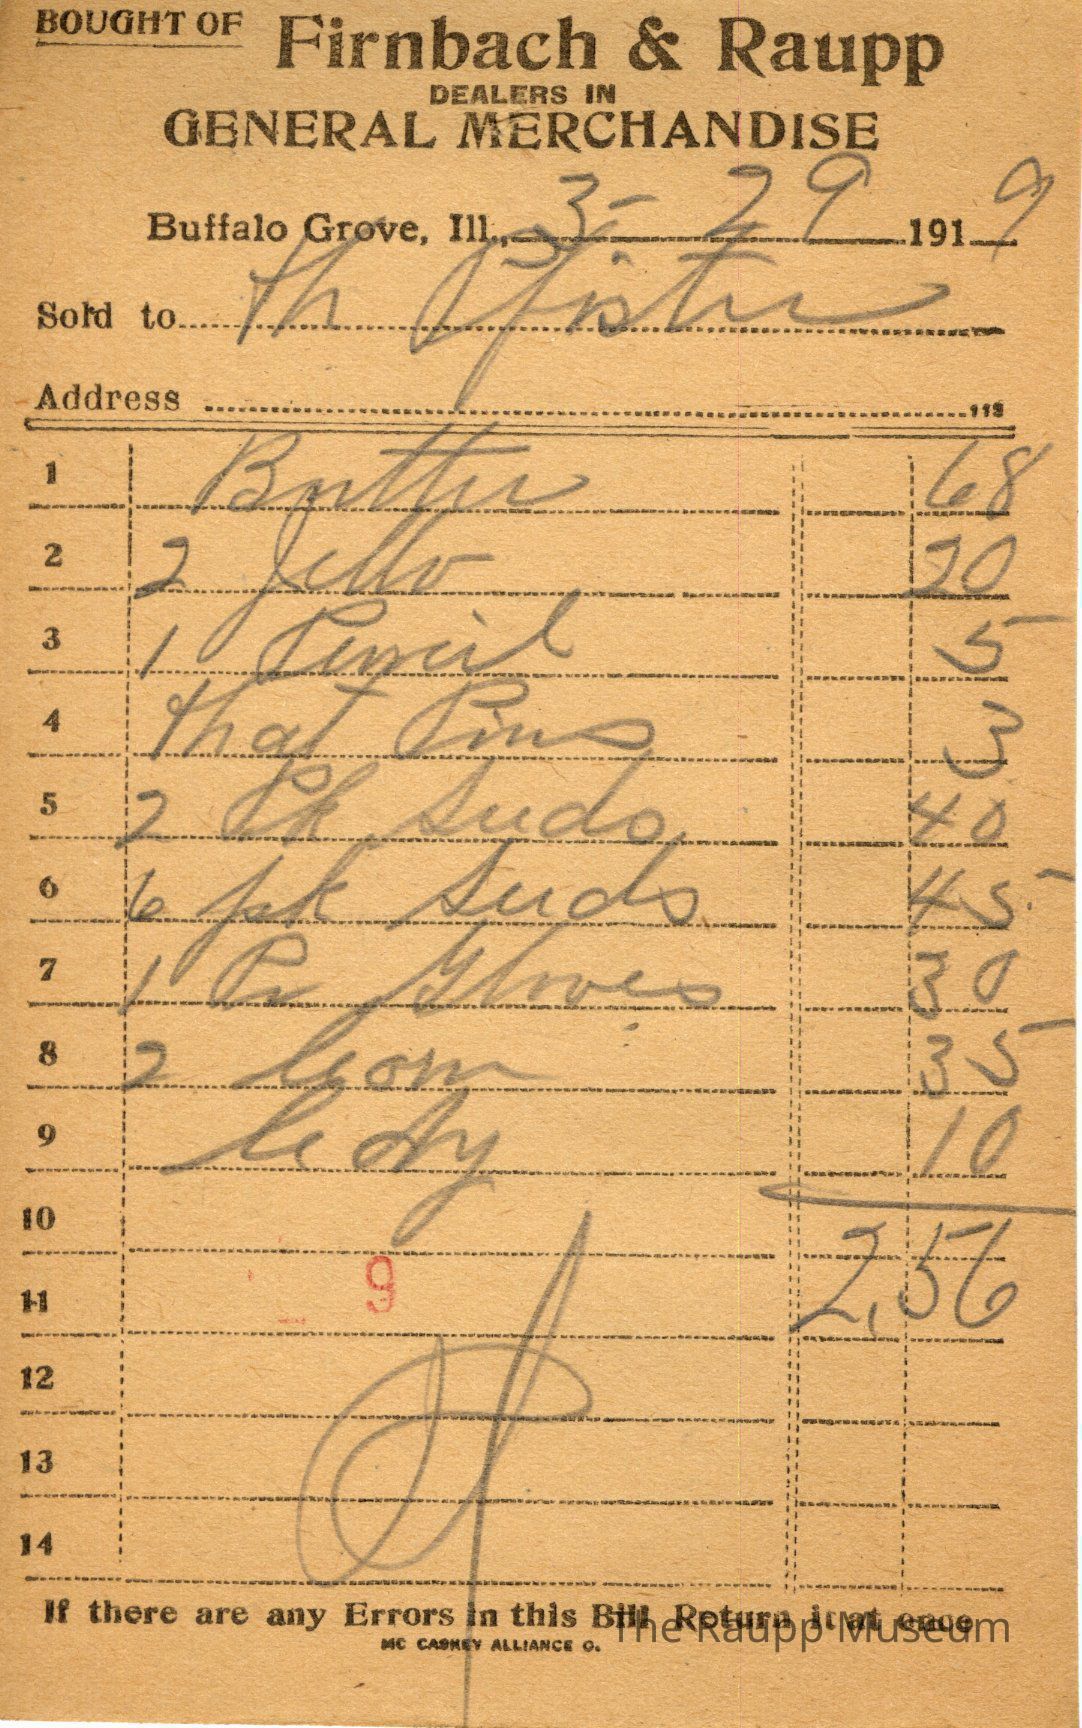 BOUGHT OF Firnbach & Raupp
DEALERS IN
GENERAL MERCHANDISE
Buffalo Grove, Ill., 3-29 1919
Sold to Th Pfister
Address 118
1 Butter 68
2 2 Jello 20
3 1 Pencil 5
4 Hat Pins 3
5 2 Pk Suds 40
6 6 pk Suds 45
7 1 Pr Gloves 30
8 2 Corn 35
9 Cdy 10
10
2,56
11 9
12
13
14
If there are any Errors in this Bill Return it at once
MC CASKEY ALLIANCE O.
The Raupp Museum